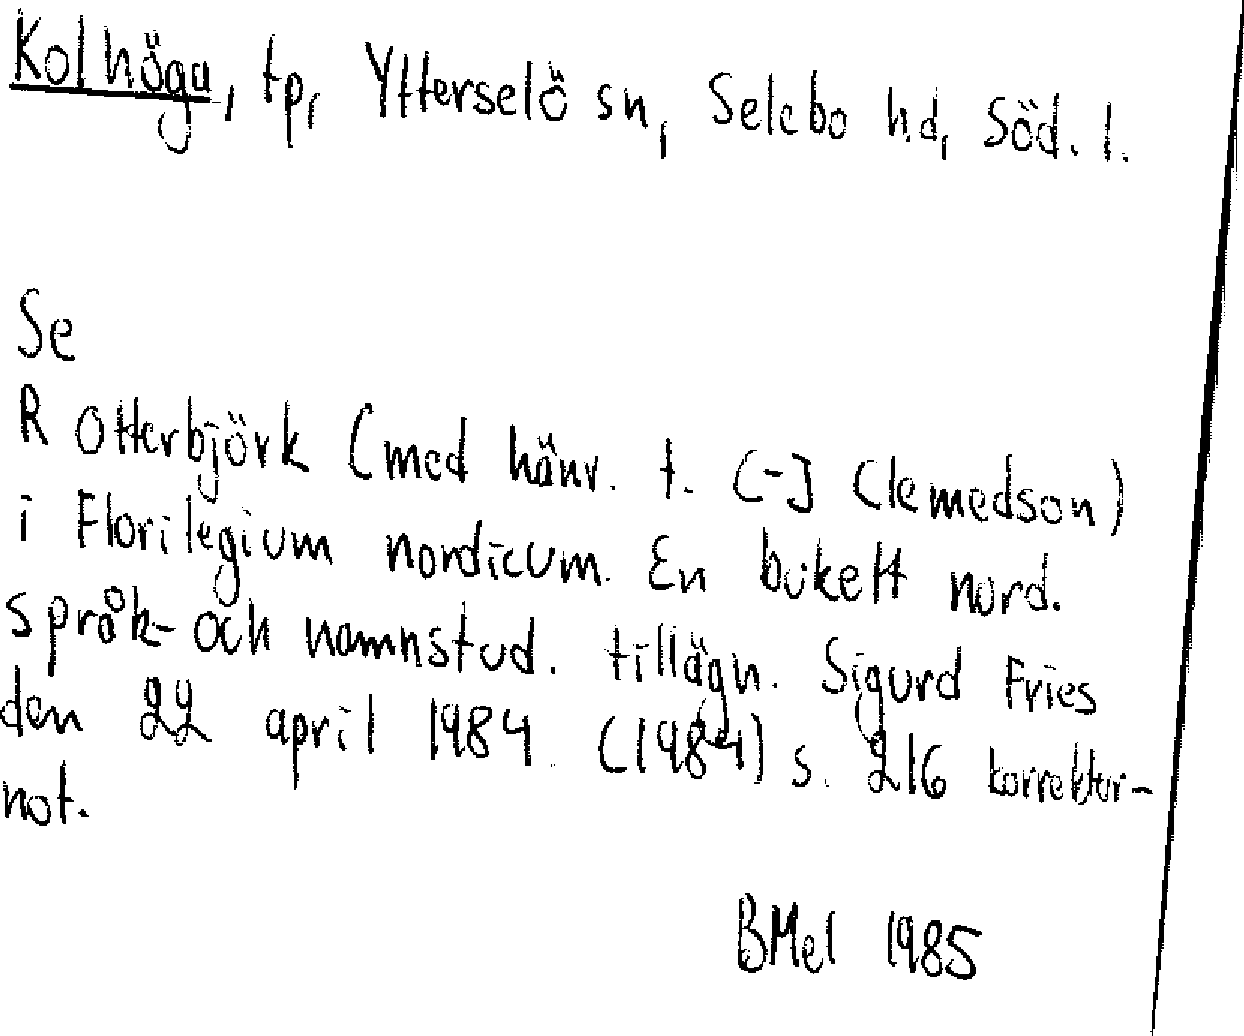 Kolhöga, tp, Ytterselö sn, Selebo hd, Söd. l.
Se
R Otterbjörk (med hänv. t. [-] Clemedson)
i Florilegium nordicum. En bukett nord.
språk- och namnstud. tillägn. Sigurd Fries
den 22 april 1984. (1984) s. 216 korrektur-
not.
BMel 1985